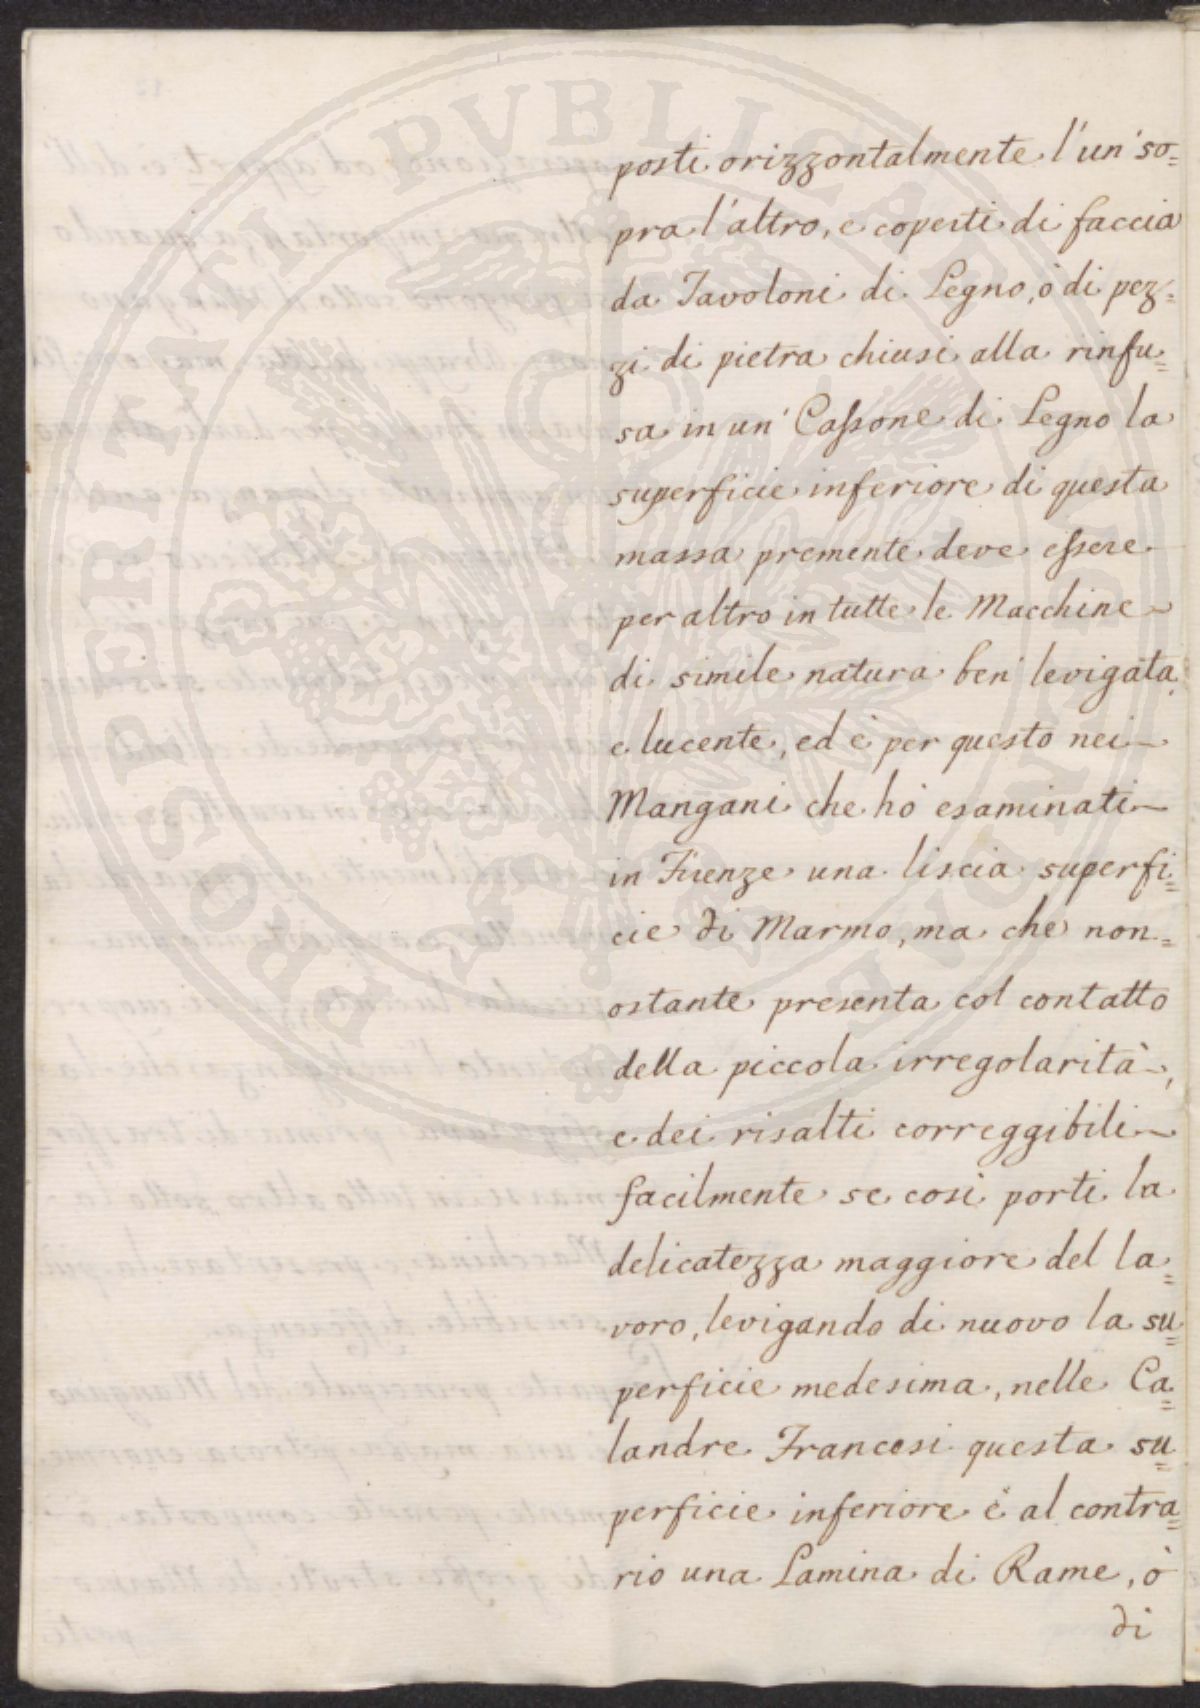 posti orizzontalmente l'un' so=
pra l'altro, e coperti di faccia
da Tavoloni di Legno, ò di pez=
zi di pietra chiusi alla rinfu=
sa in un' Cassone di Legno la
superficie inferiore di questa
massa premente deve essere
per altro in tutte le Macchine
di simile natura ben' levigata,
e lucente, ed è per questo nei
Mangani che hò esaminati
in Firenze una liscia superfi=
cie di Marmo, ma che non=
ostante presenta col contatto
della piccola irregolarità,
e dei risalti correggibili
facilmente se così porti la
delicatezza maggiore del la=
voro, levigando di nuovo la su=
perficie medesima, nelle Ca=
landre Francesi questa su=
perficie inferiore è al contra=
rio una Lamina di Rame, ò
di
PROSPERITATI PUBLICAE AUGENDAE